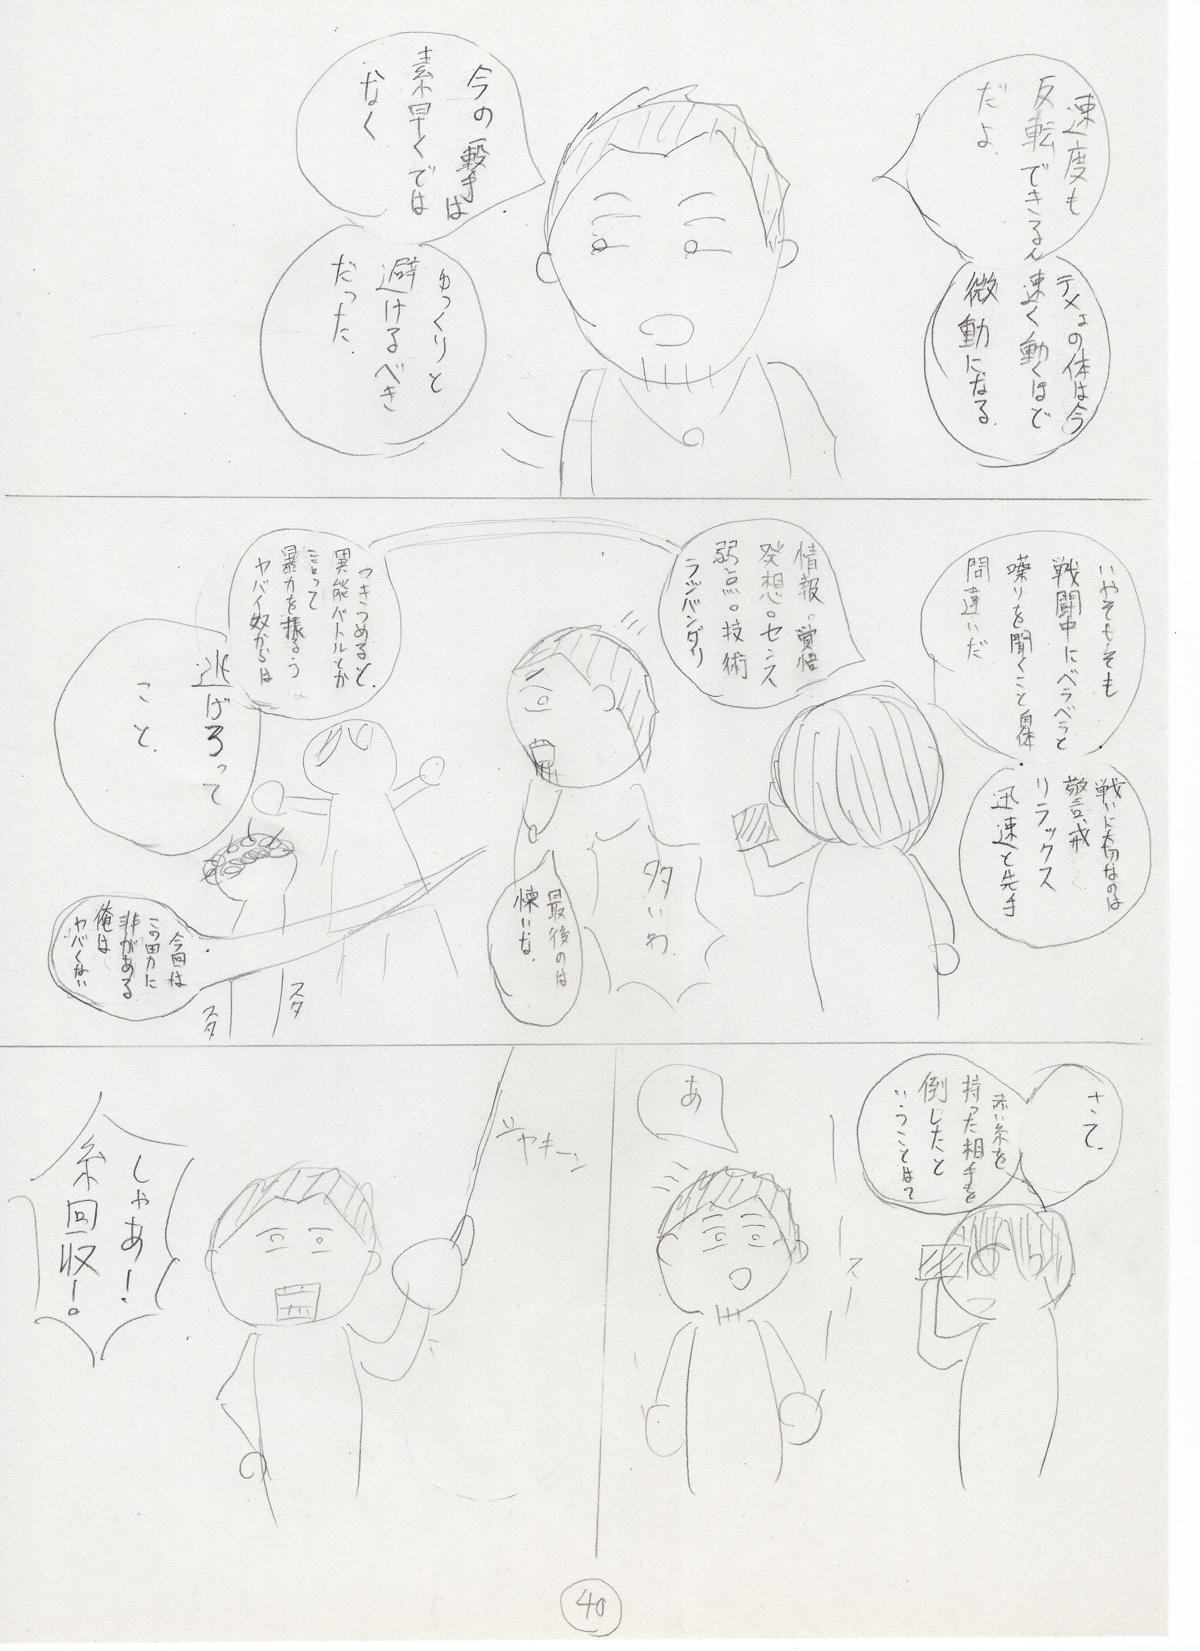 速度も
反転できるん
だよ
テメェの体は今
速く動くほど
微動になる
今の一撃は
素早くでは
なく
ゆっくりと
避けるべき
だった
いやそもそも
戦闘中にベラベラと
喋りを聞くこと自体
間違いだ
戦いに大切なのは
警戒
リラックス
迅速と先手
情報。覚悟
発想。センス
弱点。技術
ラジバンダリ
多いわ
最後のは
懐いな
つきつめると
異能バトルとか
言って
暴力を振るう
ヤバイ奴からは
逃げろって
こと
今回は
この男に
非がある
俺は
ヤバくない
スタ
スタ
さて
赤い糸を
持った相手を
倒したと
いうことはて
スー
あ
ジャキーン
しゃあ!
糸回収!。
40